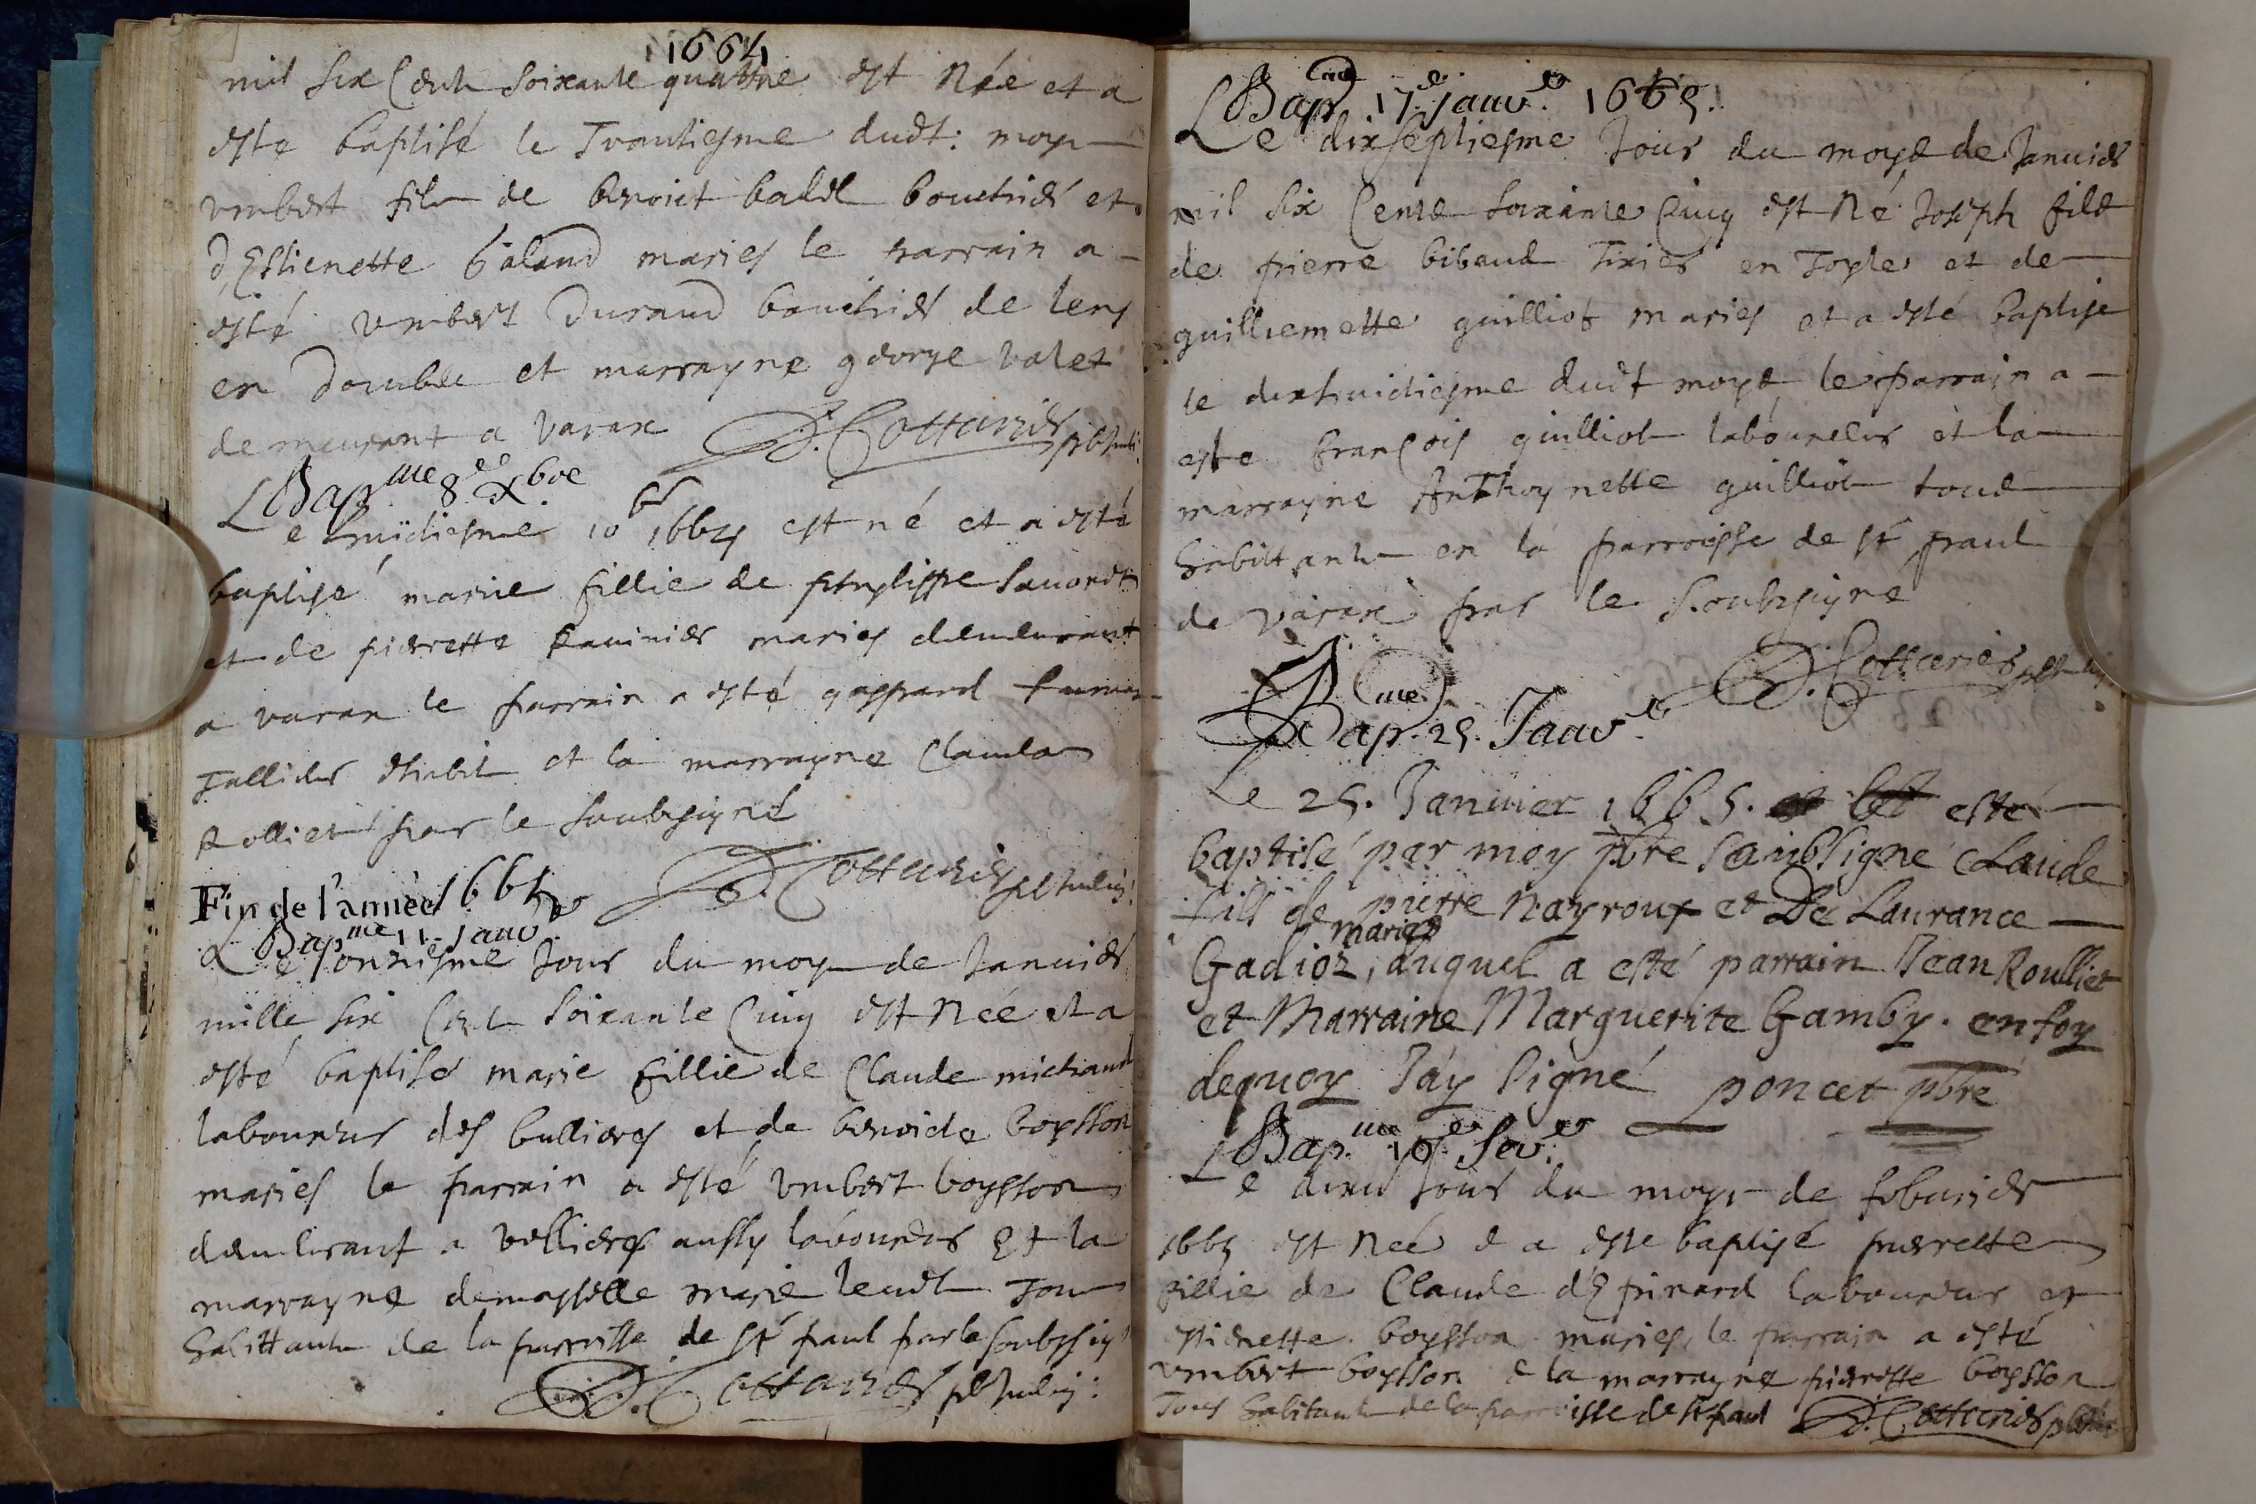 1664
mil six Cent soixante quattre est Née et a
este baptisé le Trantiesme dudt: moys
vmbert fils de benoict ballet bouchier et
d'Estienette Galand maries le parrain a
esté vmbert Durand bouchier de lens
en double et marrayne george valet
demeurant a varax D. Cottarier
Bap.me 8.e Xbre
Le huidiesme 10br 1664 est né et a esté
baptisé marie fillie de phylippe Sauoret
et de pierrette Rauinier maries demeurant
a varax le parrain a esté gaspard
Tallieur dhabit et la marrayne Clauda
Rolliet par le soubsigné
D. Cottarier
Fin de l'année 1664
Bap.me 11. Janv.er
Le onziesme Jour du moys de Januier
mille six Cent Soixante Cinq est Née et a
esté baptisée marie fillie de Claude michaud
laboureur des bullieres et de benoicte boysson
maries le parrain a esté vmbert boysson
demeurant a vollieres aussy laboureur Et la
marrayne demoyselle marie Tous
habittants de la parroisse de St paul par le soubssig
D. Cottarier
Bap. 17.e Janv.er 1665.
Le dixseptiesme Jour du moys de Januier
mil six Cents soixante Cinq est Né Joseph fils
de pierre bibaud Tixier en Toyle et de
guilliemette guilliot maries et a esté baptisé
le dixhuidiesme dudt moys, le parrain a
esté françois guilliot laboureur et la
marrayne Anthoynette guilliot tous
habittants en la parroisse de st paul
de varax par le soubsigné
D. Cottarier
Bap.me 25. Janv.er
Le 25. Januier 1665. esté
baptisé par moy pbre soubsigné Claude
fils de pierre Nayroux et De Laurance
mariés
Gadioz, auquel a esté parrain Jean Roulliet
et Marraine Marguerite Gamby. en foy
dequoy J'ay signé poncet pbre
Bap.me 10.e Fev.er
Le dixe Jour du moys de feburier
1665 est Née & a este baptisé pierrette
fillie de Claude d'Epinard laboureur et
estienette boysson maries, le parrain a esté
vmbert boysson & la marrayne pierrette boysson
Tous habitants de la parroisse de st paul D. Cottarier